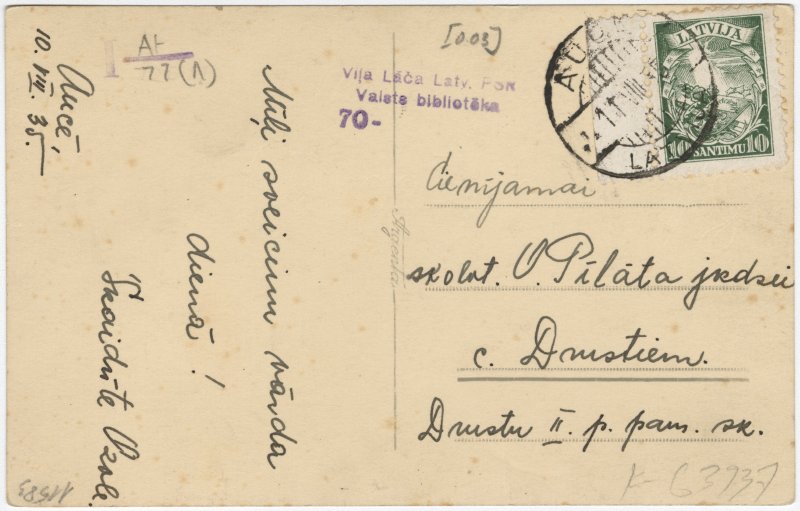 Aucē,
10. VIII. 35.
Mīļi sveicim vārda
dienā!
Skaidrīte Ozola.
I AH
77(1)
[0.03]
Vija Lāča Latv. PSR
Valsts bibliotēka
70-
LATVIJA
10 SANTIMU 10
AUCE
LA
Cienījamai
skolot. O. Pīlāta jkdzei
c. Drustiem.
Drustu II. p. pam. sk.
K-63937
11583